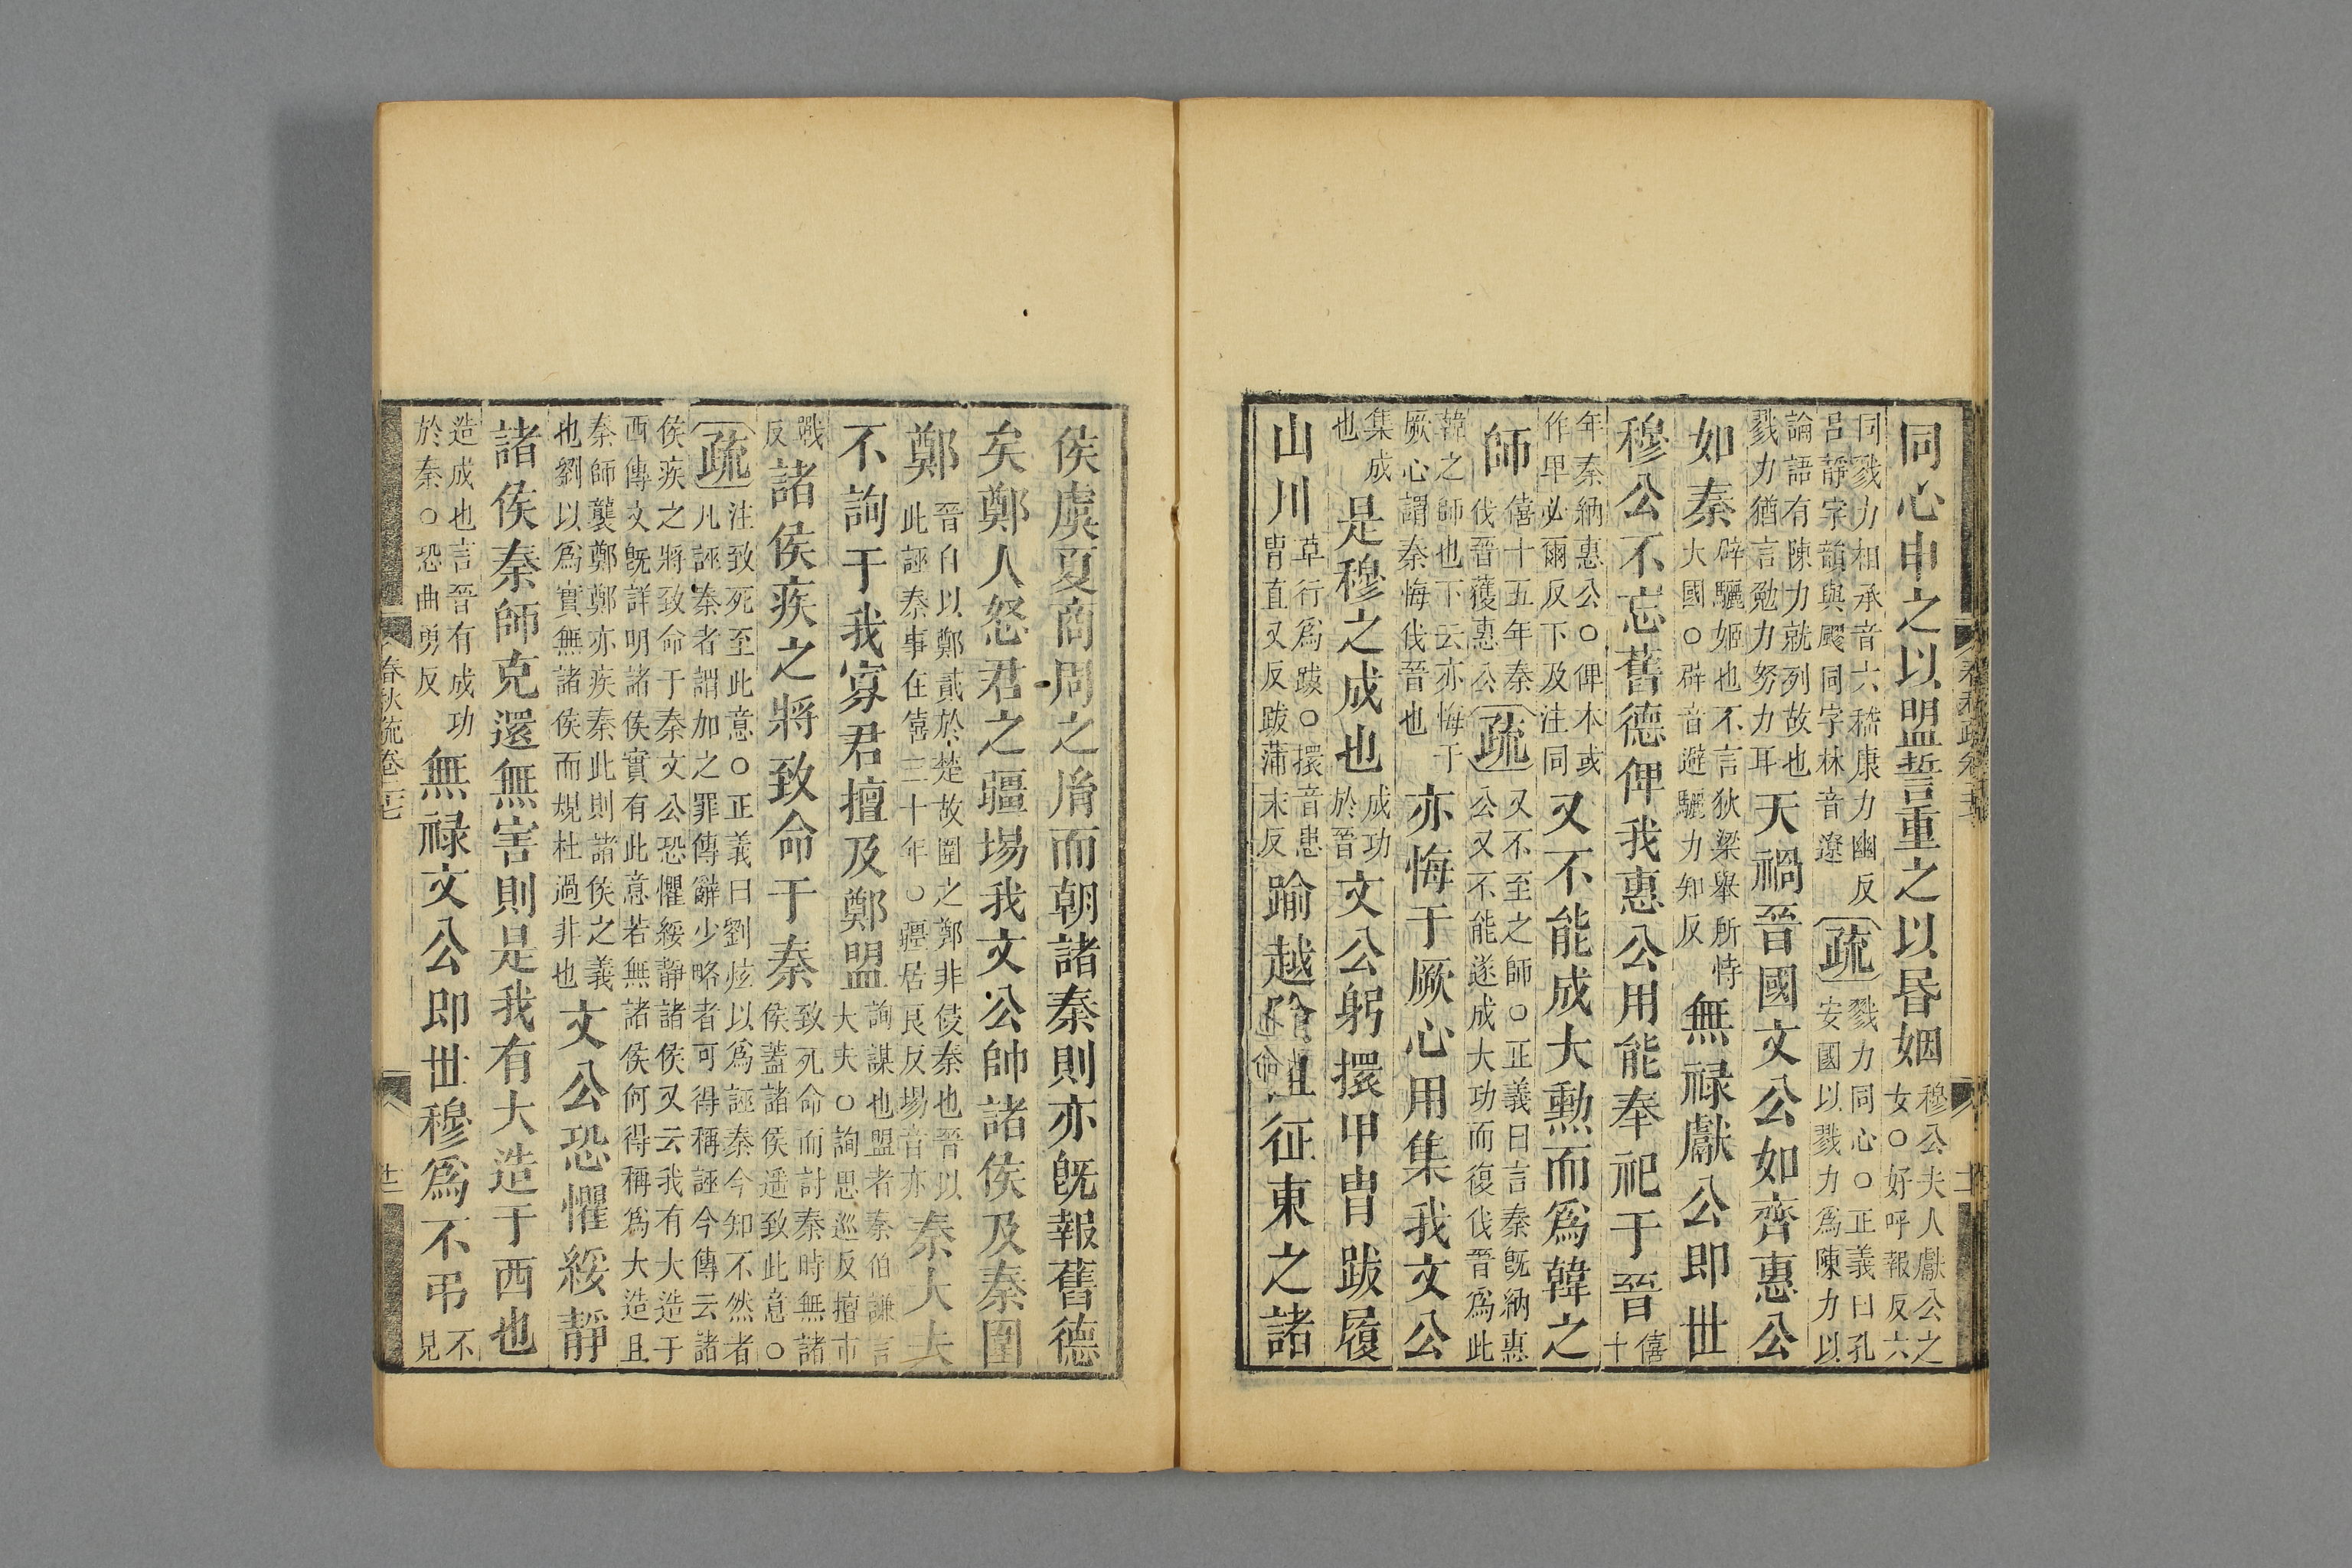 同心申之以盟誓重之以昏姻穆公夫人獻公之女○好呼報反六
同戮力相承音六嵇康力幽反呂靜字韻與飂同字林音遼疏戮力同心○正義曰孔安國以戮力爲陳力以
論語有陳力就列故也戮力猶言勉力努力耳天禍晉國文公如齊惠公
如秦辟驪姬也不言狄梁舉所恃大國○辟音避驪力知反無祿獻公即世
穆公不忘舊德俾我惠公用能奉祀于晉僖十
年秦納惠公○俾本或作卑必爾反下及注同又不能成大勲而爲韓之
師僖十五年秦伐晉獲惠公疏又不至之師○正義曰言秦旣納惠公又不能遂成大功而復伐晉爲此
韓之師也下云亦悔于厥心謂秦悔伐晉也亦悔于厥心用集我文公
集成也是穆之成也成功於晉文公躬擐甲冑跋履
山川草行爲跋○擐音患冑直又反跋蒲末反踰越險阻征東之諸
侯虞夏商周之胤而朝諸秦則亦旣報舊德
矣鄭人怒君之疆埸我文公帥諸侯及秦圍
鄭晉自以鄭貳於楚故圍之鄭非侵秦也晉以此誣秦事在僖三十年○疆居良反埸音亦秦大夫
不詢于我寡君擅及鄭盟詢謀也盟者秦伯謙言大夫○詢思巡反擅市
戰反諸侯疾之將致命于秦致死命而討秦時無諸侯蓋諸侯遥致此意○
疏注致死至此意○正義曰劉炫以爲誣秦今知不然者凡誣秦者謂加之罪傳辭少略者可得稱誣今傳云諸
侯疾之將致命于秦文公恐懼綏靜諸侯又云我有大造于西傳文旣詳明諸侯實有此意若無諸侯何得稱爲大造且
秦師襲鄭鄭亦疾秦此則諸侯之義也劉以爲實無諸侯而規杜過非也文公恐懼綏靜
諸侯秦師克還無害則是我有大造于西也
造成也言晉有成功於秦○恐曲勇反無祿文公即世穆爲不弔不見
春秋疏卷二十七